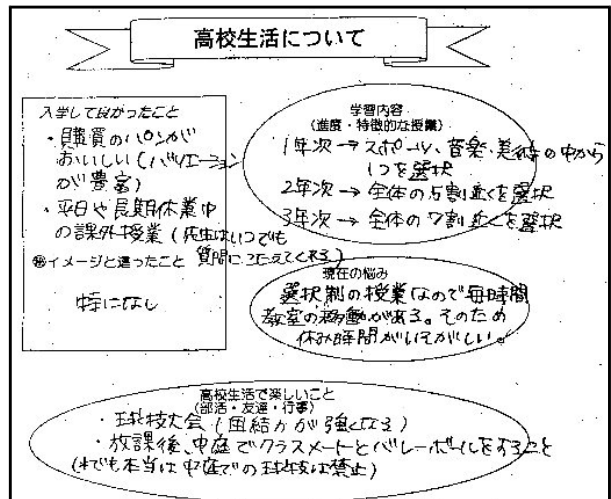 高校生活について
入学して良かったこと
・購買のパンが
おいしい(バリエーション
が豊富)
・平日や長期休業中
の課外授業(先生はいつでも
質問にこたえてくれる)
イメージと違ったこと
特になし
学習内容
(進度・特徴的な授業)
1年次→スポーツ、音楽、美術の中から
1つを選択
2年次→全体の5割近くを選択
3年次→全体の7割近くを選択
現在の悩み
選択制の授業なので毎時間
教室の移動がある。そのため
休み時間がいそがしい。
高校生活で楽しいこと
(部活・友達・行事)
・球技大会(団結力が強くなる)
・放課後、中庭でクラスメートとバレーボールをすること
(※でも本当は中庭での球技は禁止)